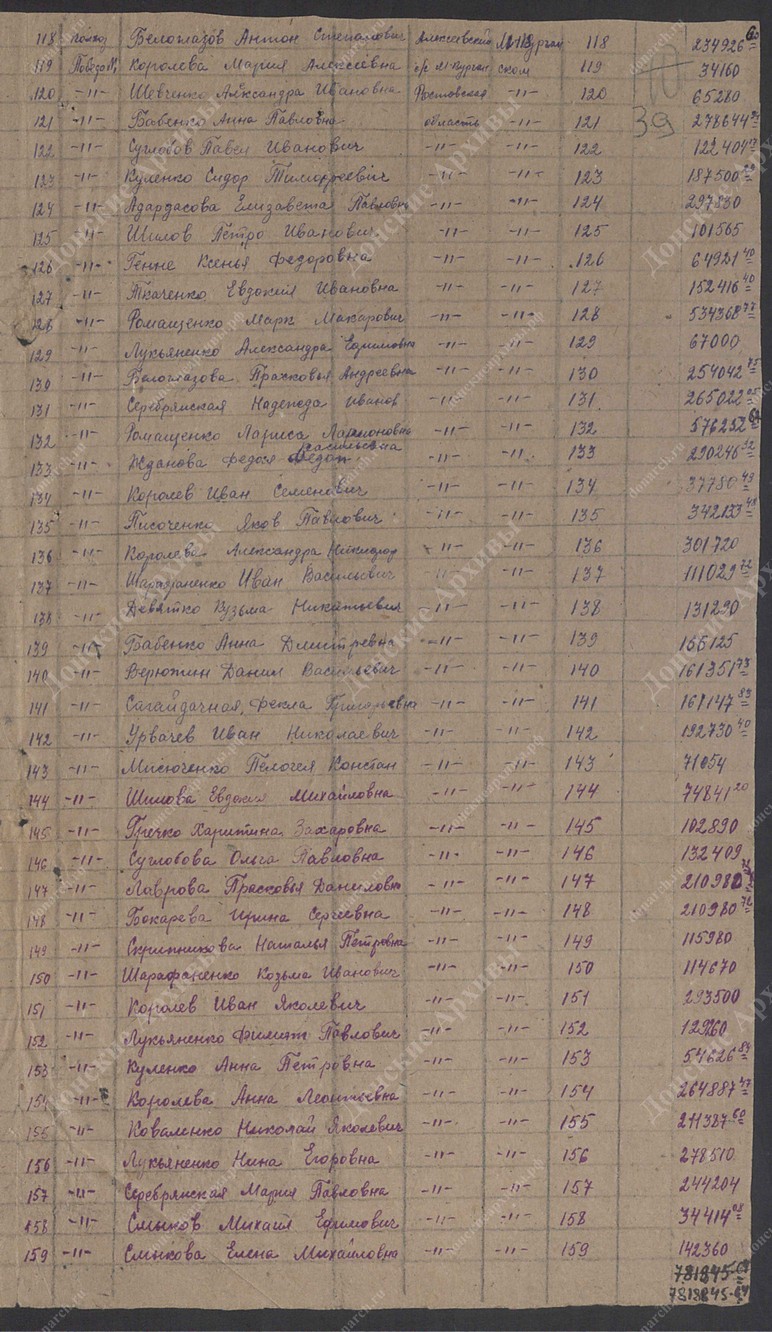 118 колхоз Белоглазов Антон Степанович Алексеевский М-Курган 118 234926 60
119 Победа Королева Мария Алексеевна с/с М-Курган ском 119 34160
120 -11- Шевченко Александра Ивановна Ростовская -11- 120 65280
121 -11- Бабенко Анна Павловна область -11- 121 39 278644
122 -11- Суглобов Павел Иванович -11- -11- 122 122404
123 -11- Куленко Сидор Тимофеевич -11- -11- 123 187500
124 -11- Адардасова Елизавета Павловна -11- -11- 124 297830
125 -11- Шилов Петро Иванович -11- -11- 125 101565
126 -11- Генне Ксенья Федоровна -11- -11- 126 64921 40
127 -11- Ткаченко Евдокия Ивановна -11- -11- 127 152416 40
128 -11- Ромащенко Марк Макарович -11- -11- 128 534368 77
129 -11- Лукьяненко Александра Ефимовна -11- -11- 129 67000
130 -11- Белоглазова Прасковья Андреевна -11- -11- 130 254042 75
131 -11- Серебрянская Надежда Иванов -11- -11- 131 265022
132 -11- Ромащенко Лариса Ларионовна -11- -11- 132 576252
133 -11- Жданова Федося Васильевна -11- -11- 133 290246 52
134 -11- Королев Иван Семенович -11- -11- 134 37780 49
135 -11- Писоченко Яков Павлович -11- -11- 135 342133 48
136 -11- Королева Александра Никифор -11- -11- 136 301720
137 -11- Шарафаненко Иван Васильевич -11- -11- 137 111029 72
138 -11- Девятко Кузьма Никитьевич -11- -11- 138 131290
139 -11- Бабенко Анна Дмитревна -11- -11- 139 165125
140 -11- Верютин Данил Васильевич -11- -11- 140 161351 73
141 -11- Сагайдачная Фекла Григорьевна -11- -11- 141 161147 83
142 -11- Урвачев Иван Николаевич -11- -11- 142 192730 40
143 -11- Мисюченко Пелогея Констан -11- -11- 143 71054
144 -11- Шилова Евдокия Михайловна -11- -11- 144 74841 20
145 -11- Гречко Харитина Захаровна -11- -11- 145 102890
146 -11- Суглобова Ольга Павловна -11- -11- 146 132409
147 -11- Лаврова Прасковья Даниловн -11- -11- 147 210980
148 -11- Бокарева Ирина Сергеевна -11- -11- 148 210980 76
149 -11- Скрипникова Наталья Петровна -11- -11- 149 115980
150 -11- Шарафаненко Козьма Иванович -11- -11- 150 114670
151 -11- Королев Иван Яколевич -11- -11- 151 293500
152 -11- Лукьяненко Филипп Павлович -11- -11- 152 12960
153 -11- Куленко Анна Петровна -11- -11- 153 54626 84
154 -11- Королева Анна Леонтьевна -11- -11- 154 264887 47
155 -11- Коваленко Николай Яколевич -11- -11- 155 211387 60
156 -11- Лукьяненко Нина Егоровна -11- -11- 156 278510
157 -11- Серебрянская Мария Павловна -11- -11- 157 244204
158 -11- Смыков Михаил Ефимович -11- -11- 158 34414 08
159 -11- Смыкова Елена Михайловна -11- -11- 159 142360
7818845-64